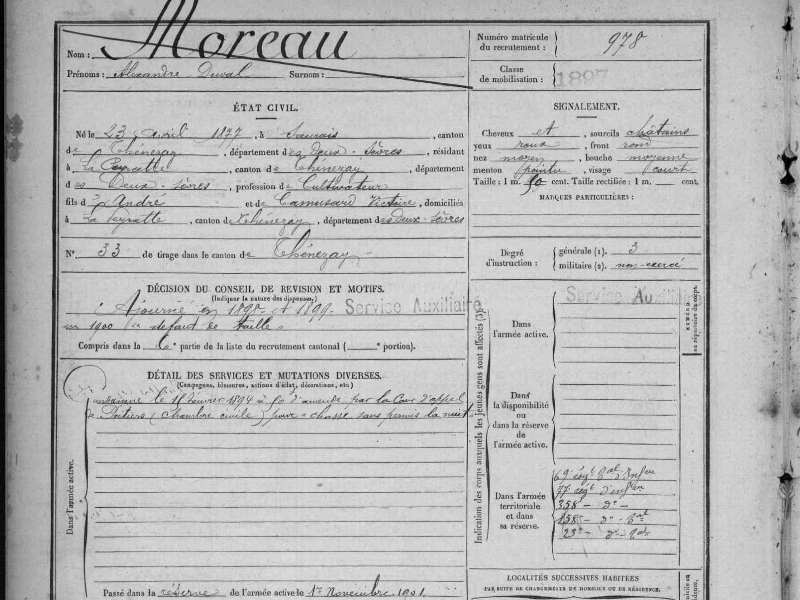 Nom : Moreau
Prénoms : Alexandre Duval Surnom :
Numéro matricule
du recrutement : 978
Classe
de mobilisation : 1897
ÉTAT CIVIL.
Né le 23 avril 1877, à Saurais, canton
de Thénezay, département des Deux-Sèvres, résidant
à La Peyratte, canton de Thénezay, département
des Deux-Sèvres, profession de Cultivateur
fils d' André et de Camusard Victoire, domiciliés
à La Peyratte, canton de Thénezay, département des Deux-Sèvres
N° 33 de tirage dans le canton de Thénezay
SIGNALEMENT.
Cheveux et, sourcils châtains
yeux roux, front rond
nez moyen, bouche moyenne
menton pointu, visage court
Taille : 1 m. 50 cent. Taille rectifiée : 1 m. cent.
MARQUES PARTICULIÈRES :
Degré
d'instruction : générale (1). 3
militaire (2). non-exercé
DÉCISION DU CONSEIL DE REVISION ET MOTIFS.
(Indiquer la nature des dispenses.)
Ajourné en 1898 et 1899. Service Auxiliaire
en 1900 "defaut de taille"
Compris dans la 6e partie de la liste du recrutement cantonal ( portion).
DÉTAIL DES SERVICES ET MUTATIONS DIVERSES.
(Campagnes, blessures, actions d'éclat, décorations, etc.)
Condamné le 11 Janvier 1894 à 50 d'amende par la Cour d'appel
de Poitiers (Chambre civile) pour "chasse sans permis la nuit"
Dans l'armée active.
Passé dans la réserve de l'armée active le 1er Novembre 1901.
Indication des corps auxquels les jeunes gens sont affectés (3).
Service Auxiliaire
Dans
l'armée active.
Dans
la disponibilité
ou
dans la réserve
de
l'armée active.
Dans l'armée
territoriale
et dans
sa réserve.
69e régt tal d'Infie
77e régt d'infie
358 - do -
158e - do - tal
23e - do - tal
au répertoire du corps.
LOCALITÉS SUCCESSIVES HABITÉES
PAR SUITE DE CHANGEMENTS DE DOMICILE OU DE RÉSIDENCE.